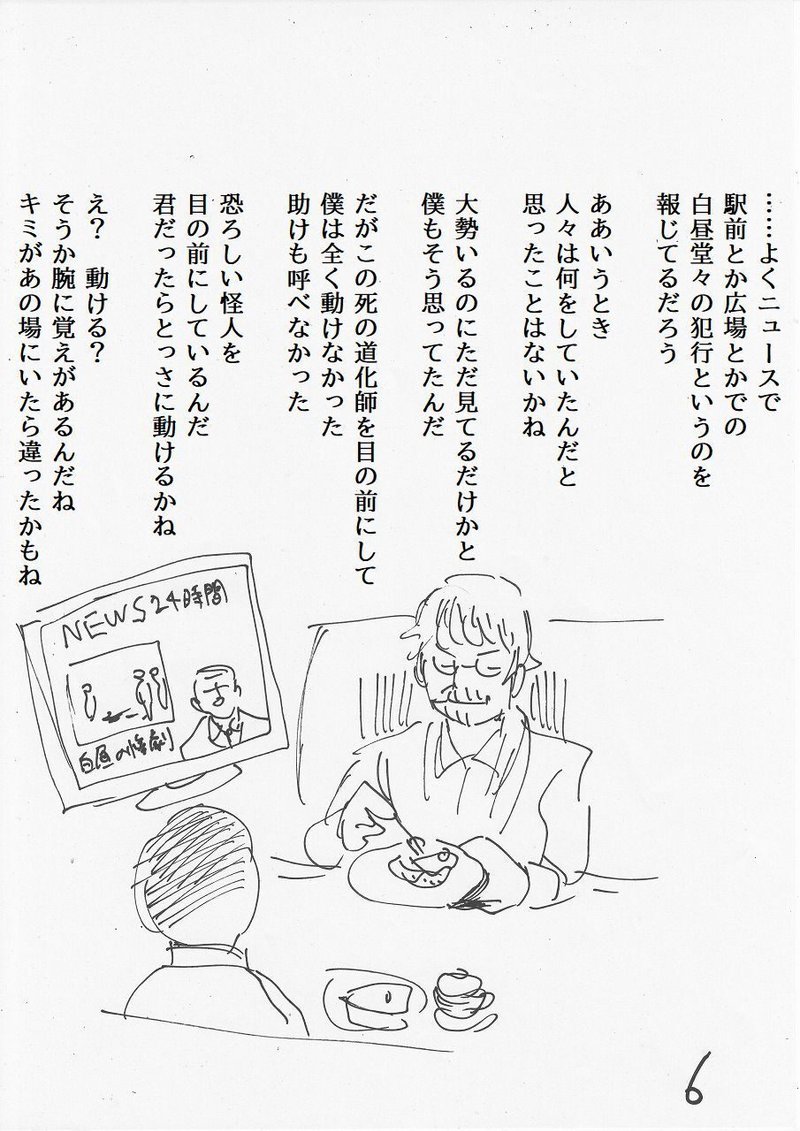 ……よくニュースで
駅前とか広場とかでの
白昼堂々の犯行というのを
報じてるだろう
ああいうとき
人々は何をしていたんだと
思ったことはないかね
大勢いるのにただ見てるだけかと
僕もそう思ってたんだ
だがこの死の道化師を目の前にして
僕は全く動けなかった
助けも呼べなかった
恐ろしい怪人を
目の前にしているんだ
君だったらとっさに動けるかね
え?　動ける?
そうか腕に覚えがあるんだね
キミがあの場にいたら違ったかもね
NEWS24時間
白昼の惨劇
6